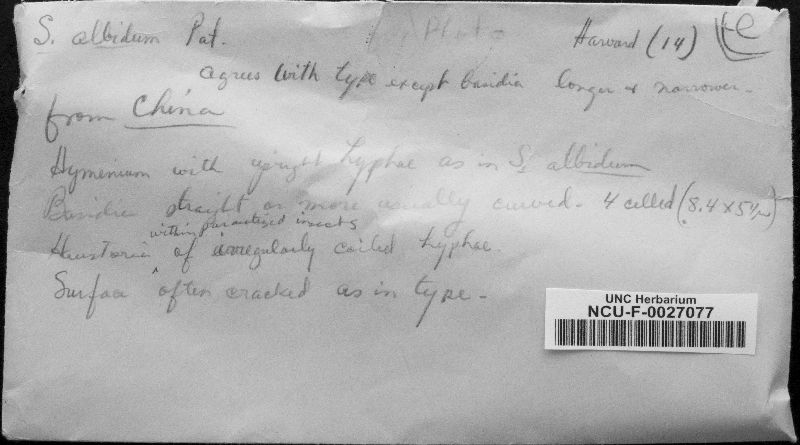 S. albidum Pat. Photo Harvard (14) Le
agrees with type except basidia longer & narrower.
from China
Hymenium with upright hyphae as in S. albidum
Basidia straight or more usually curved. 4 celled (8.4 x 54µ)
within parasitized insects
Haustoria ^ of irregularly coiled hyphae.
Surface often cracked as in type.
UNC Herbarium
NCU-F-0027077